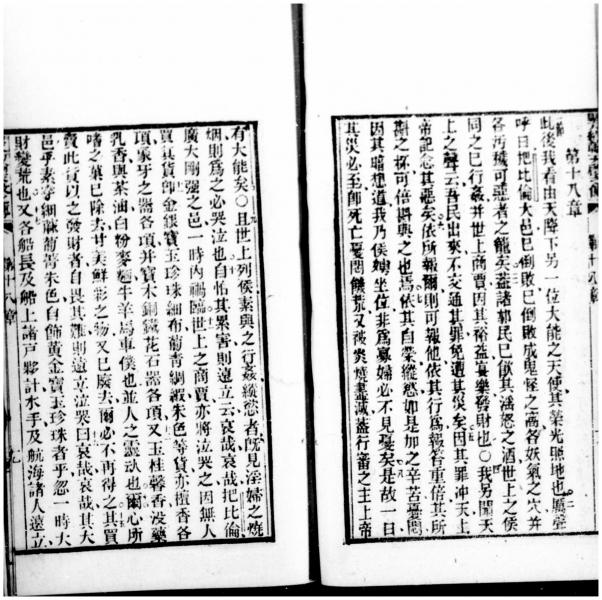 第十八章
此後我看由天降下另一位大能之天使其榮光照地也厲聲
呼曰把比倫大邑已倒敗已倒敗成鬼怪之窩各妖氣之穴並
各污穢可惡者之籠矣蓋諸郭民已飲其淫怒之酒世上之侯
同之已行姦並世上商賈因其裕益宴樂發財也○我另聞天
上之聲云吾民出來不交通其罪免遭其災矣因其罪冲天上
帝記念其惡矣依所報爾則可報他依其行為報答重倍其所
斟之杯可倍斟與之也焉依其自榮縱慾如是加之辛苦憂悶
因其暗想道我乃侯嫂坐位非為寡婦必不見憂矣是故一日
其災必至即死亡憂悶饑荒又被炎燒盡滅蓋行審之主上帝
有大能矣○且世上列侯素與之行姦縱慾者旣見淫婦之燒
烟則為之必哭泣也自怕其累害則遠立云哀哉哀哉把比倫
廣大剛强之邑一時內禍臨世上之商賈亦將泣哭之因無人
買其貨即金銀寶玉珍珠細布葡青綢緞朱色等貨亦檀香各
項象牙之器各項并寶木銅鐵花石器各項又玉桂馨香沒藥
乳香與茶油白粉麥麵牛羊馬車僕也並人之靈魂也爾心所
嗜之菓已除去凡美鮮彩之物又已廢去爾必不再得之其買
賣此貨以之發財者自畏其難則遠立泣哭曰哀哉哀哉其大
邑乎素穿細麻葡青朱色自飾黃金寶玉珍珠者乎忽一時大
財變荒也又各船長及船上諸戶夥計水手及航海諸人遠立
第十八章
九